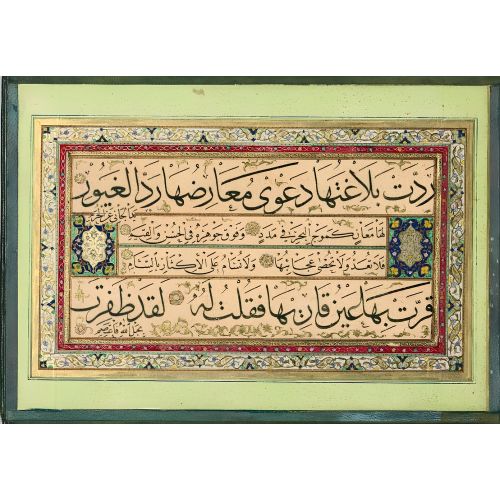 ردت بلاغتها دعوى معارضها رد الغيور
يد الجاني عن الحرم
لها معان كموج البحر في مدد وفوق جوهره في الحسن والقيم
فلا تعد ولا تحصى عجائبها ولا تسام على الاكثار بالسأم
قرت بها عين قاريها فقلت له لقد ظفرت
بحبل الله فاعتصم